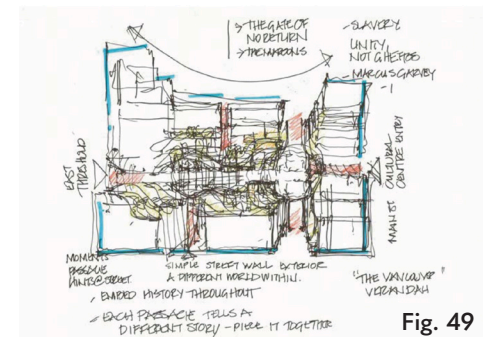 → THE GATE OF
NO RETURN
→ THE MAROONS
- SLAVERY
UNITY,
NOT GHETTOS
- MARCUS GARVEY
EAST
THRESHOLD
MAIN ST CULTURAL
CENTRE ENTRY
MOMENTS
PASSAGE
HINTS @ STREET.
SIMPLE STREET WALL EXTERIOR
A DIFFERENT WORLD WITHIN.
"THE VANCOUVER"
VERANDAH
EMBED HISTORY THROUGHOUT
EACH PASSAGE TELLS A
DIFFERENT STORY - PIECE IT TOGETHER
Fig. 49